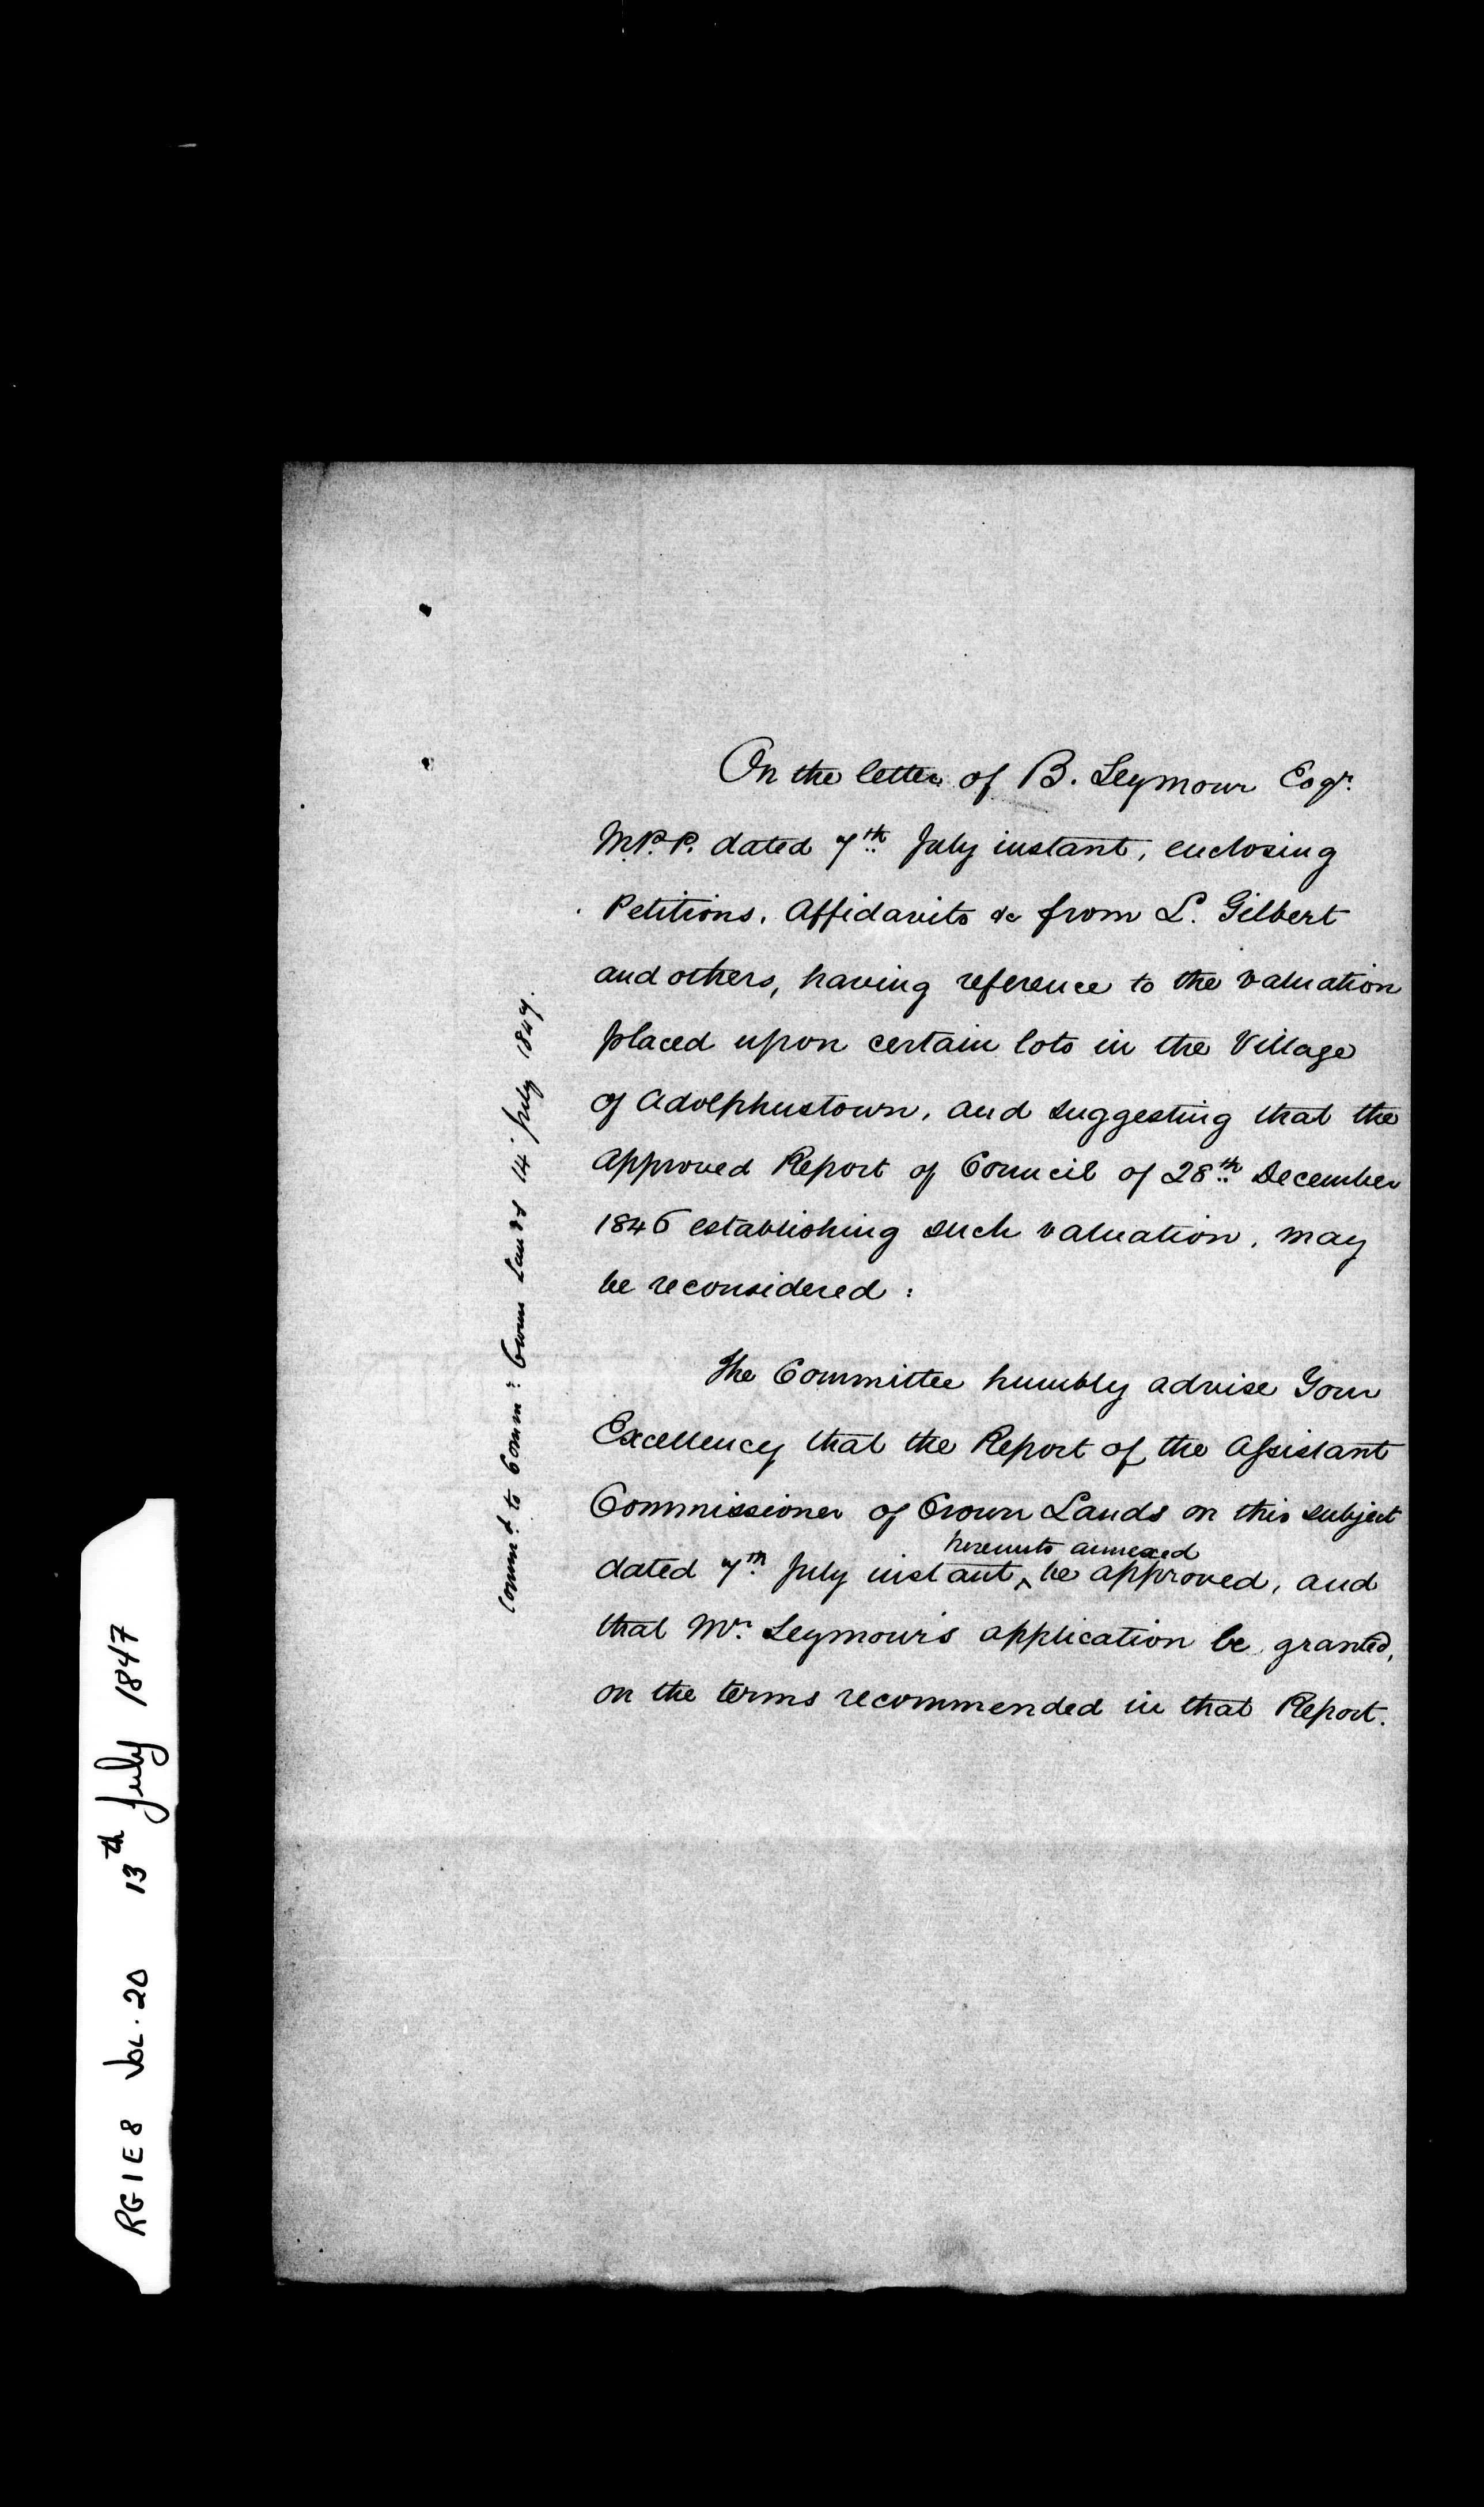 On the letter of B. Seymour Esqr.
M.P.P. dated 7th July instant, enclosing
Petitions, Affidavits &c from L. Gilbert
and others, having reference to the valuation
placed upon certain lots in the Village
of Adolphustown, and suggesting that the
approved Report of Council of 28th December
1846 establishing such valuation, may
be reconsidered :
The Committee humbly advise Your
Excellency that the Report of the Assistant
Commissioner of Crown Lands on this subject
hereunto annexed
dated 7th July instant, ^ be approved, and
that Mr. Seymour's application be granted,
on the terms recommended in that Report.
Commd to Comm: Crown Lands 14 July 1847.
RG 1 E 8 Vol. 20 13th July 1847